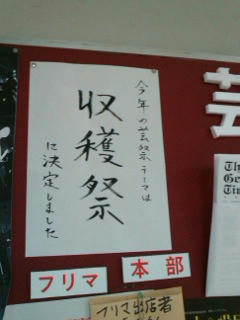 今年の芸祭テーマは
収穫祭
に決定しました
芸
フリマ
本部
フリマ出店者
The
Ge
Tim